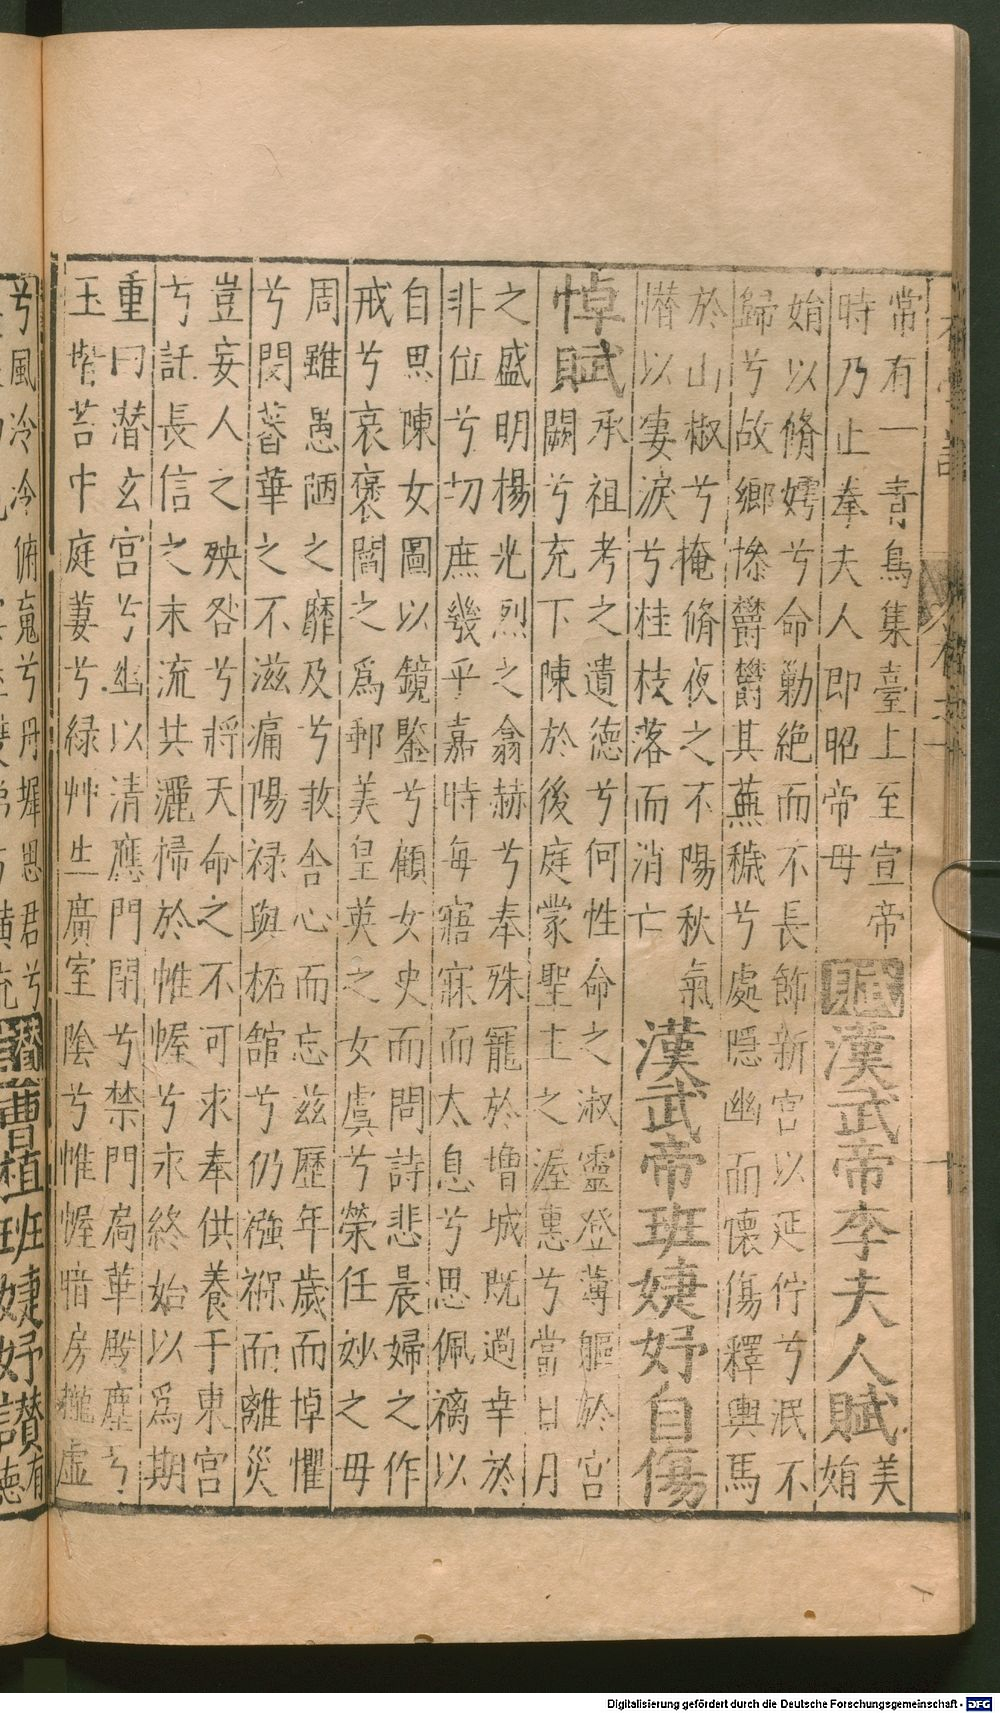 常有一青鳥集臺上至宣帝
時乃止拳夫人即昭帝母
賦
漢武帝李夫人賦
美
娋
娋以脩嫮兮命勦絶而不長飾新宫以延佇兮泯不
歸兮故鄉慘鬱鬱其蕪穢兮處隠幽而懷傷釋輿馬
於山椒兮掩脩夜之不陽秋氣
憯以凄淚兮桂枝落而消亡
漢武帝班婕妤自傷
悼賦
承祖考之遺德兮何性命之淑靈登薄軀於宫
闕兮充下陳於後庭蒙聖主之渥惠兮當日月
之盛明楊光烈之翕赫兮奉殊寵於増城既過幸於
非位兮切庶幾乎嘉時每寤寐而太息兮思佩褵以
自思陳女圖以鏡鑒兮顧女史而問詩悲晨婦之作
戒兮哀褒閻之爲郵美皇英之女虞兮榮任姒之母
周雖愚陋之靡及兮敢舍心而忘兹歷年歲而悼懼
兮閔蕃華之不滋痛陽禄與柘館兮仍襁褓而離災
豈妾人之殃咎兮將天命之不可求奉供養于東宫
兮託長信之末流共灑掃於帷幄兮永終始以爲期
重曰潜玄宫兮幽以清應門閉兮禁門扃華殿塵兮
玉堦苔中庭萋兮緑艸生廣室陰兮惟幄暗房櫳虛
兮風冷冷俯兮丹墀思君兮
讃
曹植班婕妤讃
有
德
Digitalisierung gefördert durch die Deutsche Forschungsgemeinschaft - DFG